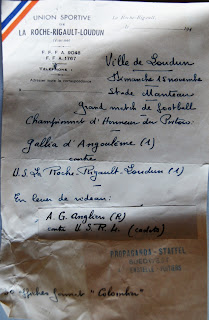 UNION SPORTIVE
DE
LA ROCHE-RIGAULT-LOUDUN
F. F. F. A. 8048
F. F. A. 1767
TÉLÉPHONE
La Roche-Rigault,
194
Ville de Loudun
Dimanche 15 novembre
Stade
Grand match de football
Championnat d'Honneur du Poitou
Gallia d'Angoulême (1)
contre
U.S. La Roche-Rigault-Loudun (1)
En lever de rideau :
A.G. Angliers (R)
contre U.S.R.L. (cadets)
PROPAGANDA-STAFFEL
POITIERS
Affiches format "Colombier"